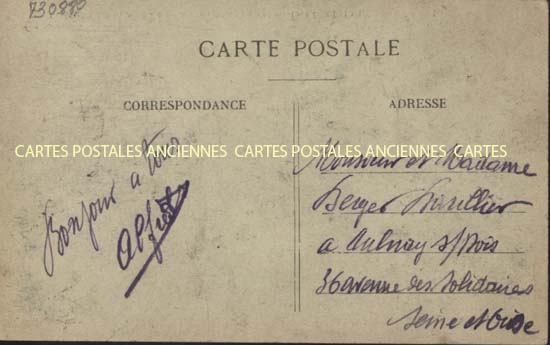 730889
CARTE POSTALE
CORRESPONDANCE
ADRESSE
CARTES POSTALES ANCIENNES CARTES POSTALES ANCIENNES
Bonjour a tous
Alfred
Monsieur et Madame
Berger
a Aulnay s/Bois
36 avenue des Solidaires
Seine et Oise